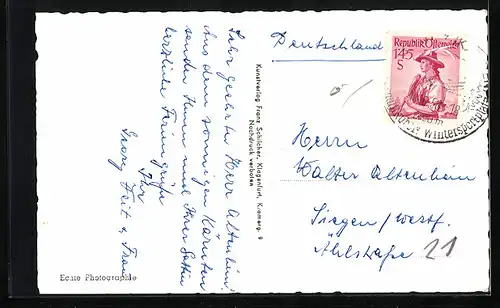 Sehr geehrter Herr Altenhein!
Aus dem sonnigen Kärnten
senden Ihnen und Ihrer Gattin
herzliche Feriengrüße
Ihr
Georg Feit u. Frau
Echte Photographie
Kunstverlag Franz Schilcher, Klagenfurt, Kramerg. 9
Nachdruck verboten
Deutschland
Republik Österreich
1.45
S
Wintersportplatz
Herrn
Walter Altenhein
Siegen / Westf.
21